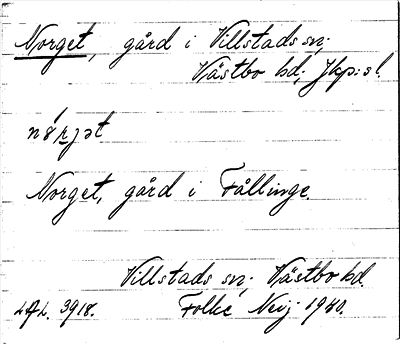 Norget, gård i Villstads sn;
Västbo hd; Jkp:s l.
Norget, gård i Fållinge.
Villstads sn; Västbo hd.
3918. Folke Neij 1940.